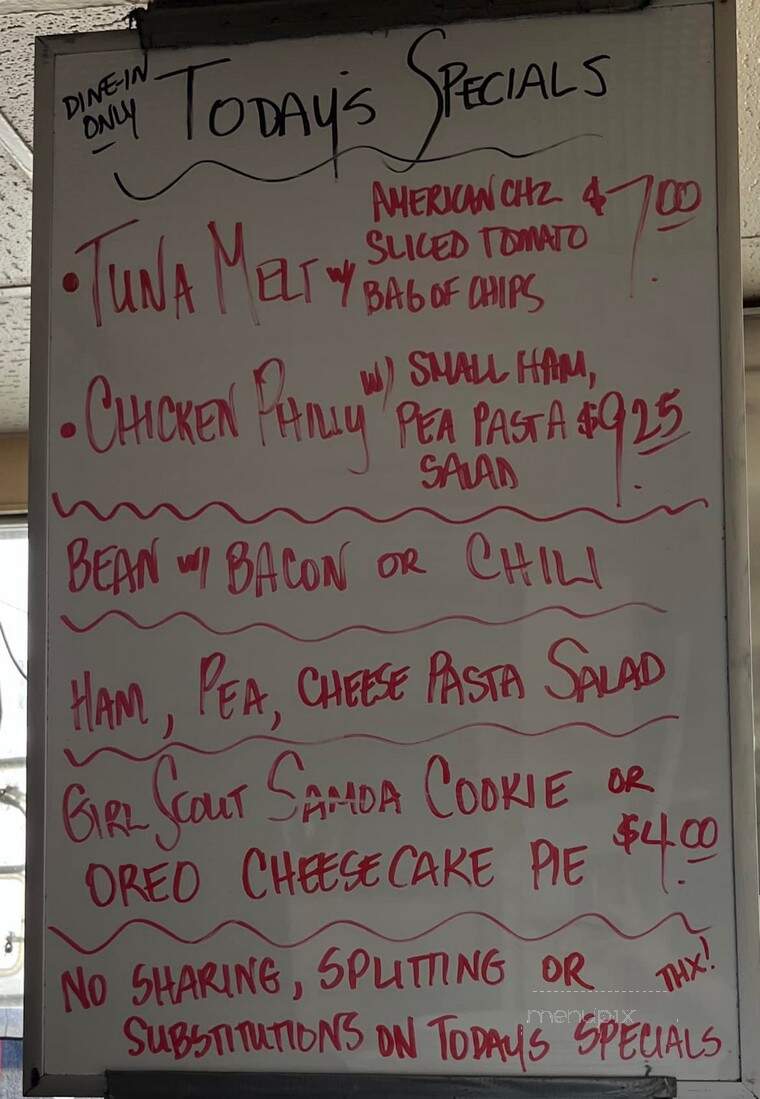 DINE-IN
ONLY
TODAY'S SPECIALS
• TUNA MELT w/ AMERICAN CHZ $7.00
SLICED TOMATO
BAG OF CHIPS
• CHICKEN PHILLY w/ SMALL HAM,
PEA PASTA $9.25
SALAD
BEAN w/ BACON OR CHILI
HAM, PEA, CHEESE PASTA SALAD
GIRL SCOUT SAMOA COOKIE OR
OREO CHEESECAKE PIE $4.00
NO SHARING, SPLITTING OR THX!
SUBSTITUTIONS ON TODAY'S SPECIALS
menupix